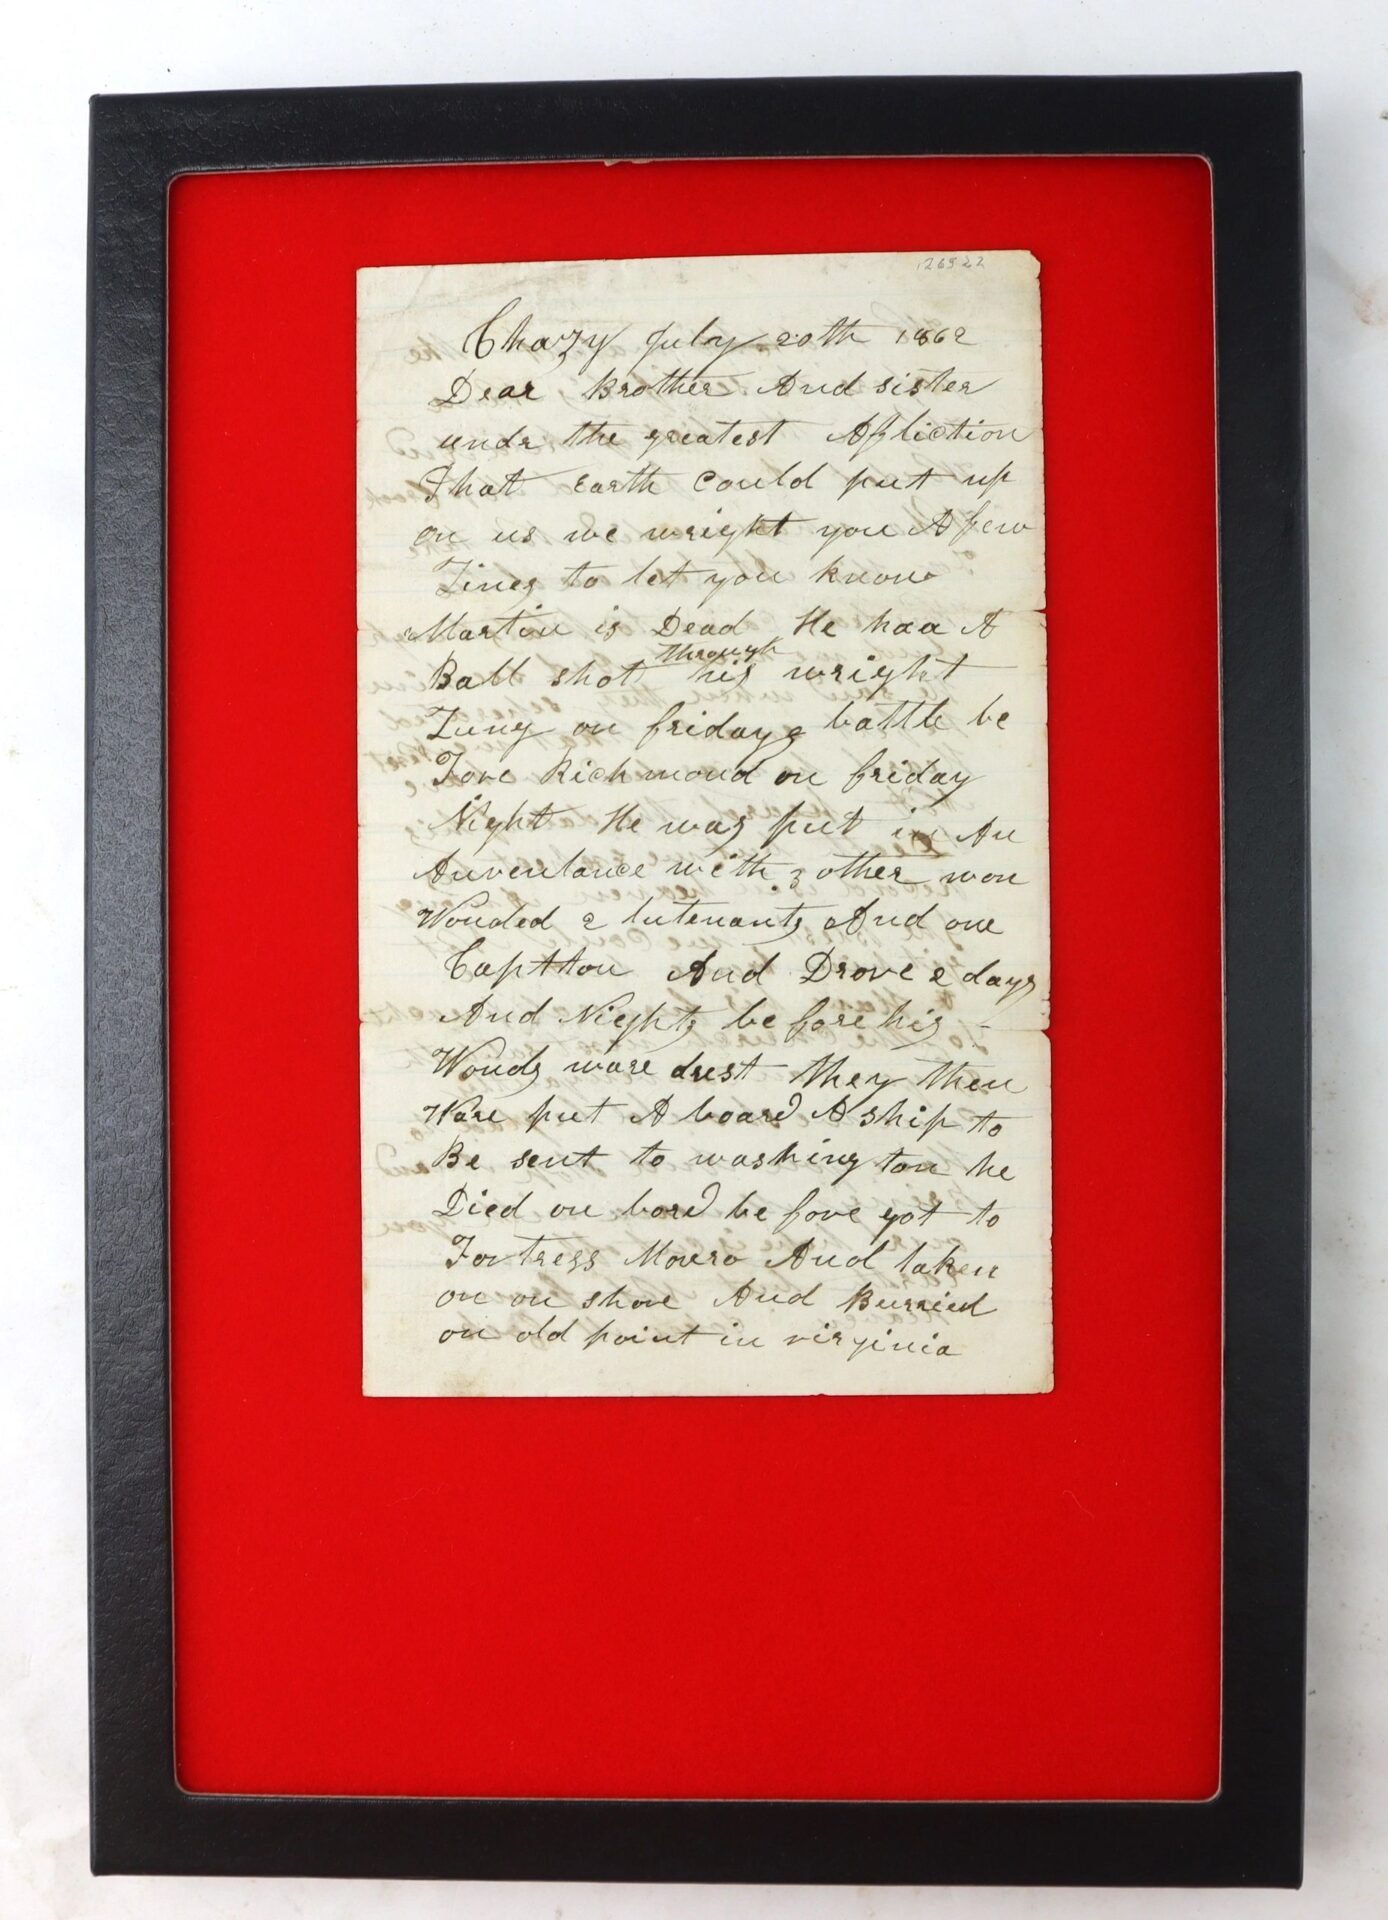 126922
Chazy July 20th 1862
Dear Brother And sister
undr the greatest Afliction
That Earth Could put up
on us we wright you A few
Lines to let you know
Martin is Dead He had A
Ball shot through his wright
Lung on fridays battle be
Fore Richmond on friday
Night He was put in An
Amvulance with 3 other won
Wonded 2 lutenants And one
Captton And Drove 2 days
And Nights be fore his
Wonds ware drest they then
Ware put A board A ship to
Be sent to washing ton he
Died on bord be fore got to
Fortress Monro And taken
on on shore And Burried
on old point in virginia